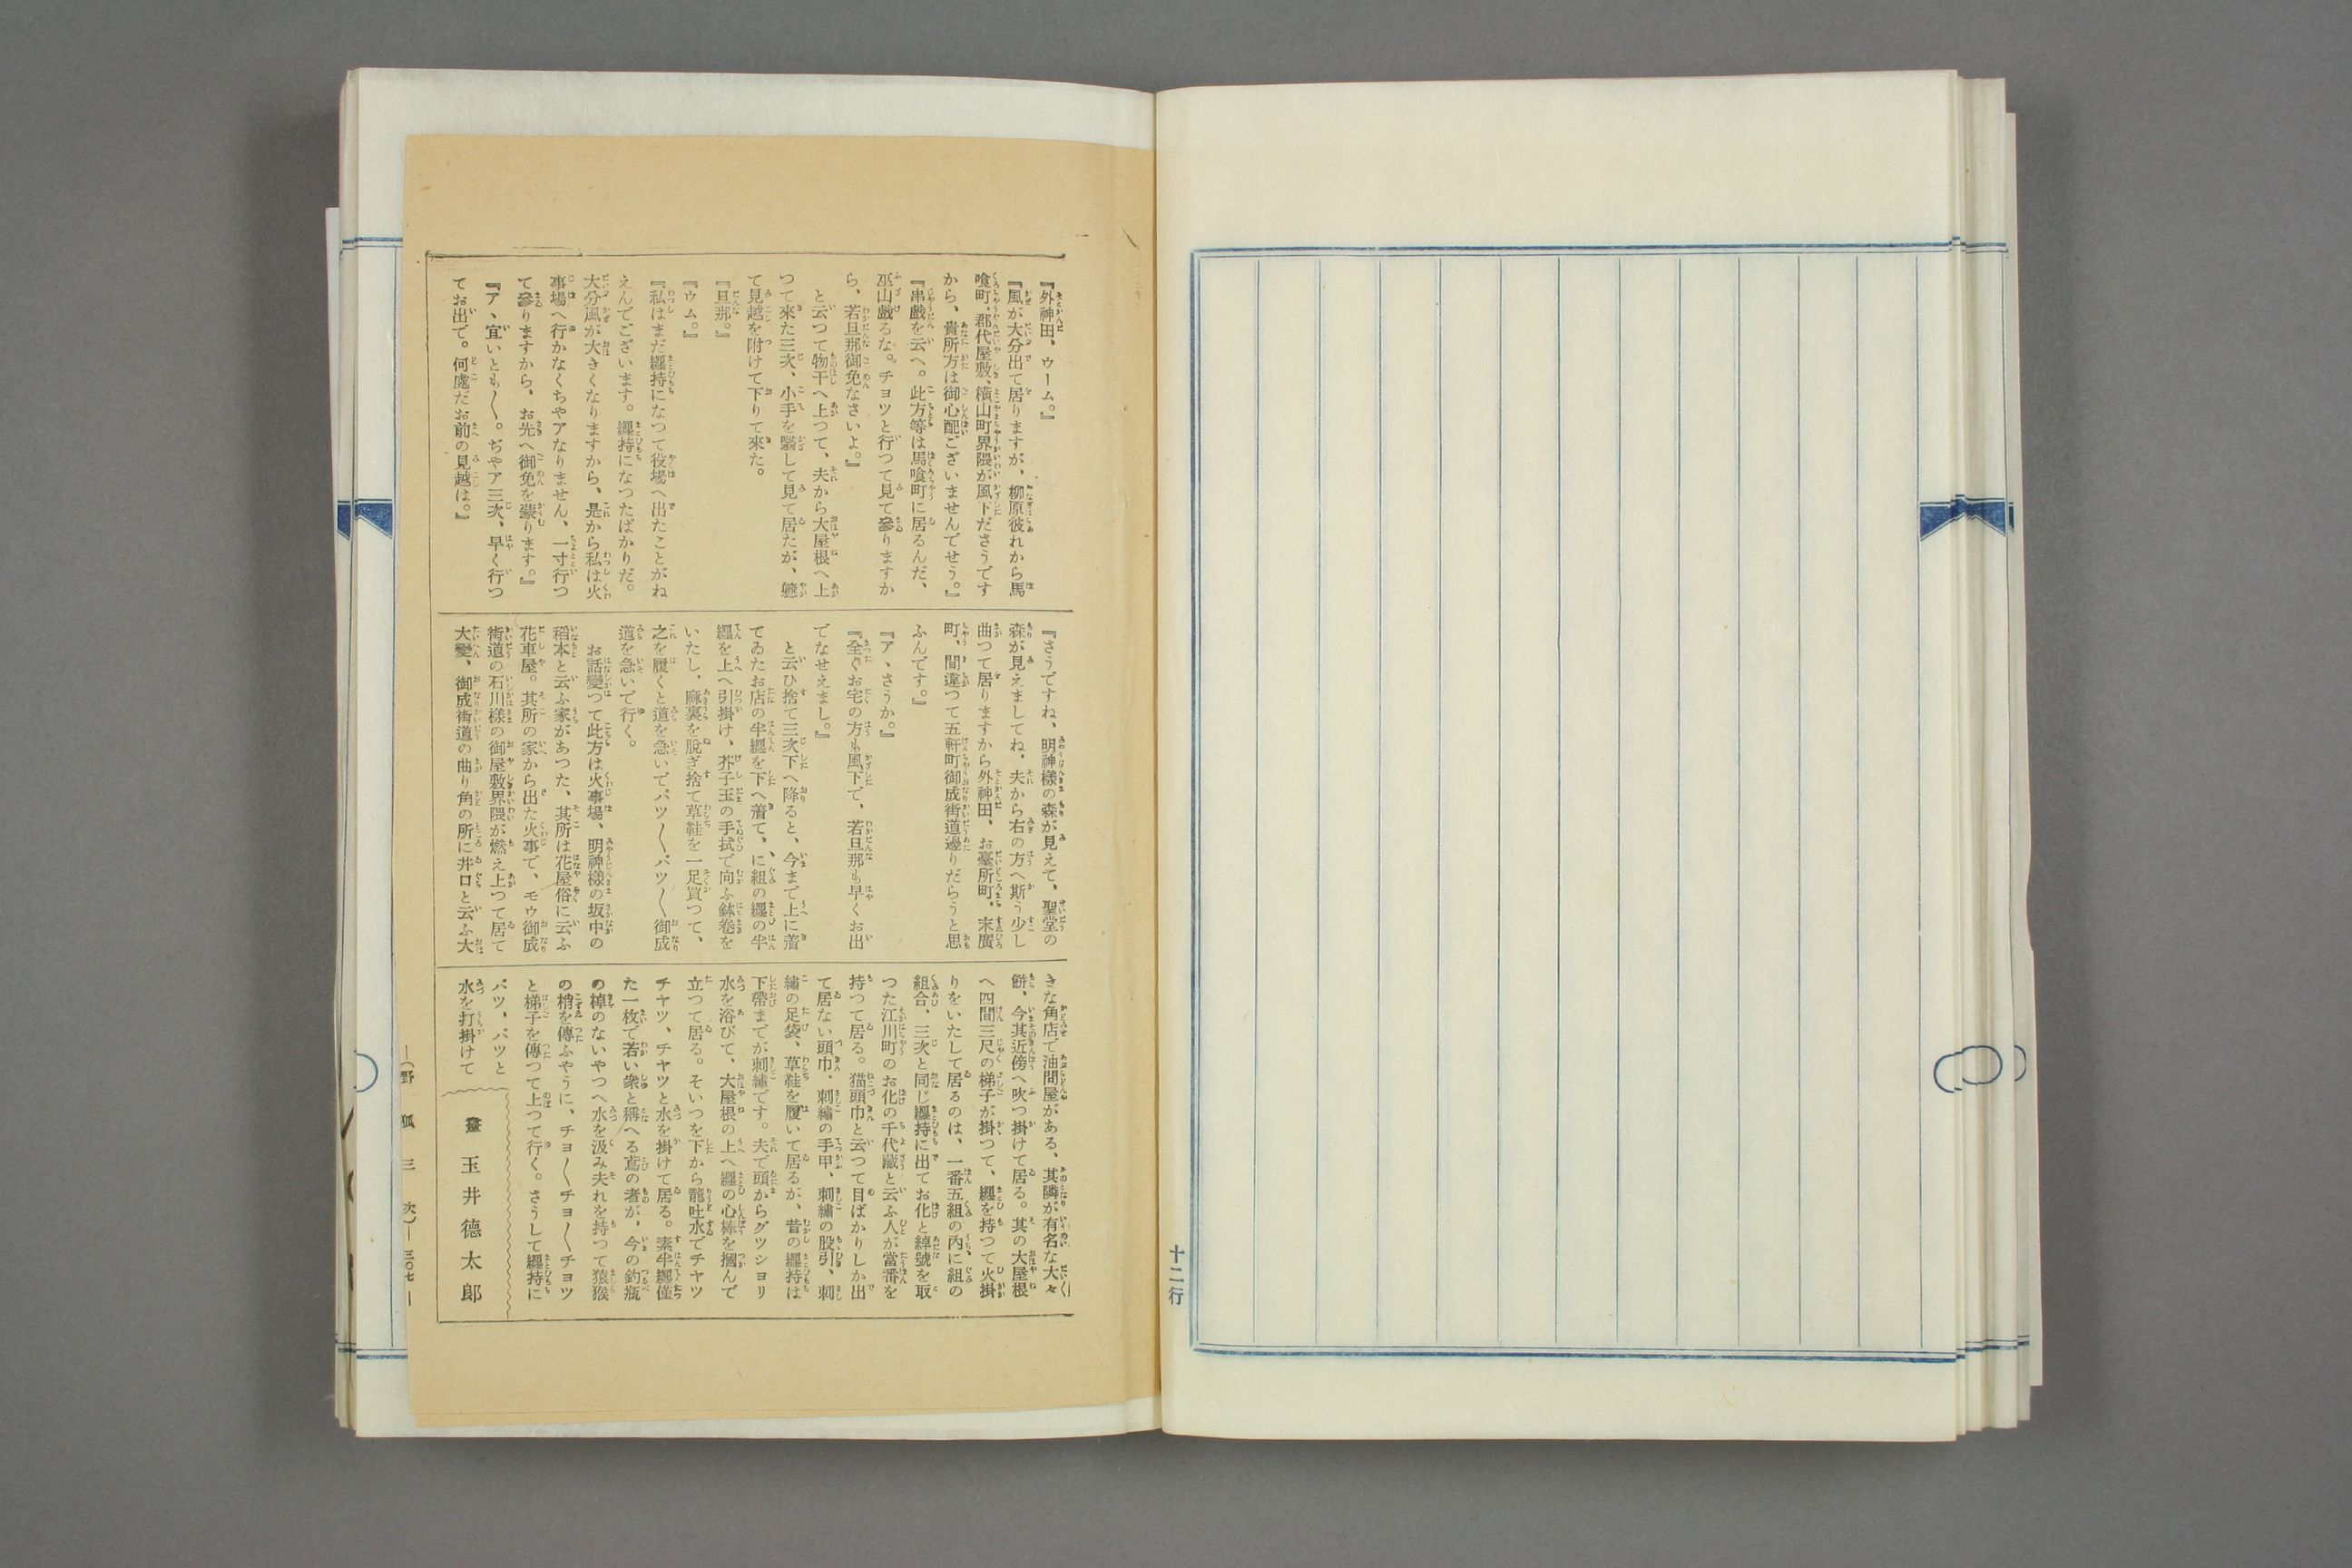 『外神田、ウーム。』
『風が大分出て居りますが、柳原彼れから馬
喰町、郡代屋敷、横山町界隈が風下ださうです
から、貴所方は御心配ございませんでせう。』
『串戯を云へ。此方等は馬喰町に居るんだ、
巫山戯ろな。チヨツと行つて見て參りますか
ら、若旦那御免なさいよ。』
と云つて物干へ上つて、夫から大屋根へ上
つて來た三次、小手を翳して見て居たが、軈
て見越を附けて下りて來た。
『旦那。』
『ウム。』
『私はまだ纒持になつて役場へ出たことがね
えんでございます。纒持になつたばかりだ。
大分風が大きくなりますから、是から私は火
事場へ行かなくちやアなりません、一寸行つ
て參りますから、お先へ御免を蒙ります。』
『ア丶宜いとも〳〵。ぢやア三次、早く行つ
てお出で。何處だお前の見越は。』
『さうですね、明神樣の森が見えて、聖堂の
森が見えましてね、夫から右の方へ斯う少し
曲つて居りますから外神田、お臺所町、末廣
町、間違つて五軒町御成街道邊りだらうと思
ふんです。』
『ア丶さうか。』
『全くお宅の方も風下で、若旦那も早くお出
でなせえまし。』
と云ひ捨て三次下へ降ると、今まで上に着
てゐたお店の半纒を下へ着て、に組の纒の半
纒を上へ引掛け、芥子玉の手拭で向ふ鉢卷を
いたし、麻裏を脫ぎ捨て草鞋を一足買つて、
之を履くと道を急いでバツ〳〵バツ〳〵御成
道を急いで行く。
お話變つて此方は火事場、明神樣の坂中の
稻本と云ふ家があつた、其所は花屋俗に云ふ
花車屋。其所の家から出た火事で、モウ御成
街道の石川樣の御屋敷界隈が燃え上つて居て
大變、御成街道の曲り角の所に井口と云ふ大
きな角店で油問屋がある、其隣が有名な大々
餅、今其近傍へ吹つ掛けて居る。其の大屋根
へ四間三尺の梯子が掛つて、纒を持つて火掛
りをいたして居るのは、一番五組の內に組の
組合、三次と同じ纒持に出てお化と綽號を取
つた江川町のお化の千代藏と云ふ人が當番を
持つて居る。猫頭巾と云つて目ばかりしか出
て居ない頭巾、刺繡の手甲、刺繡の股引、刺
繡の足袋、草鞋を履いて居るが、昔の纒持は
下帶までが刺繡です。夫で頭からグツシヨリ
水を浴びて、大屋根の上へ纒の心棒を摑んで
立つて居る。そいつを下から龍吐水でチヤツ
チヤツ、チヤツと水を掛けて居る。素半纒僅
た一枚で若い衆と稱へる鳶の者が、今の釣瓶
の棹のないやつへ水を汲み夫れを持つて猿猴
の梢を傳ふやうに、チヨ〳〵チヨ〳〵チヨツ
と梯子を傳つて上つて行く。さうして纒持に
バツ、バツと
水を打掛けて
畫 玉井德太郎
—(野狐三次)—三〇七—
十二行